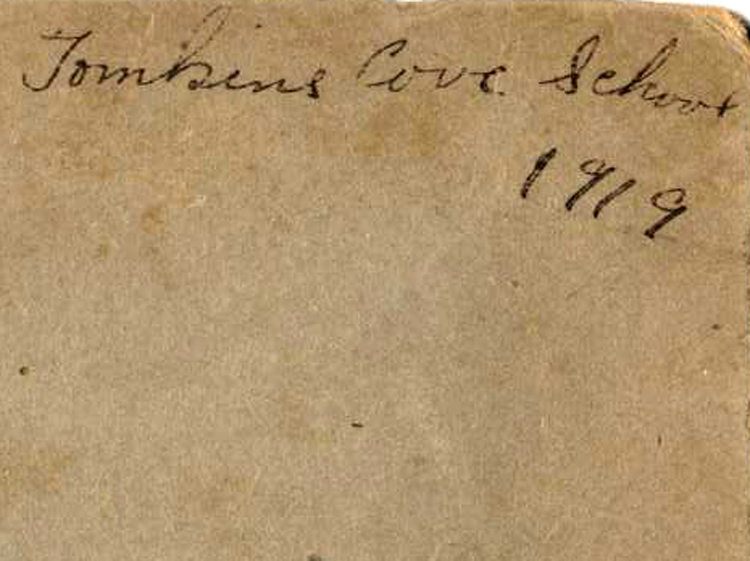 Tomkins Cove School
1919